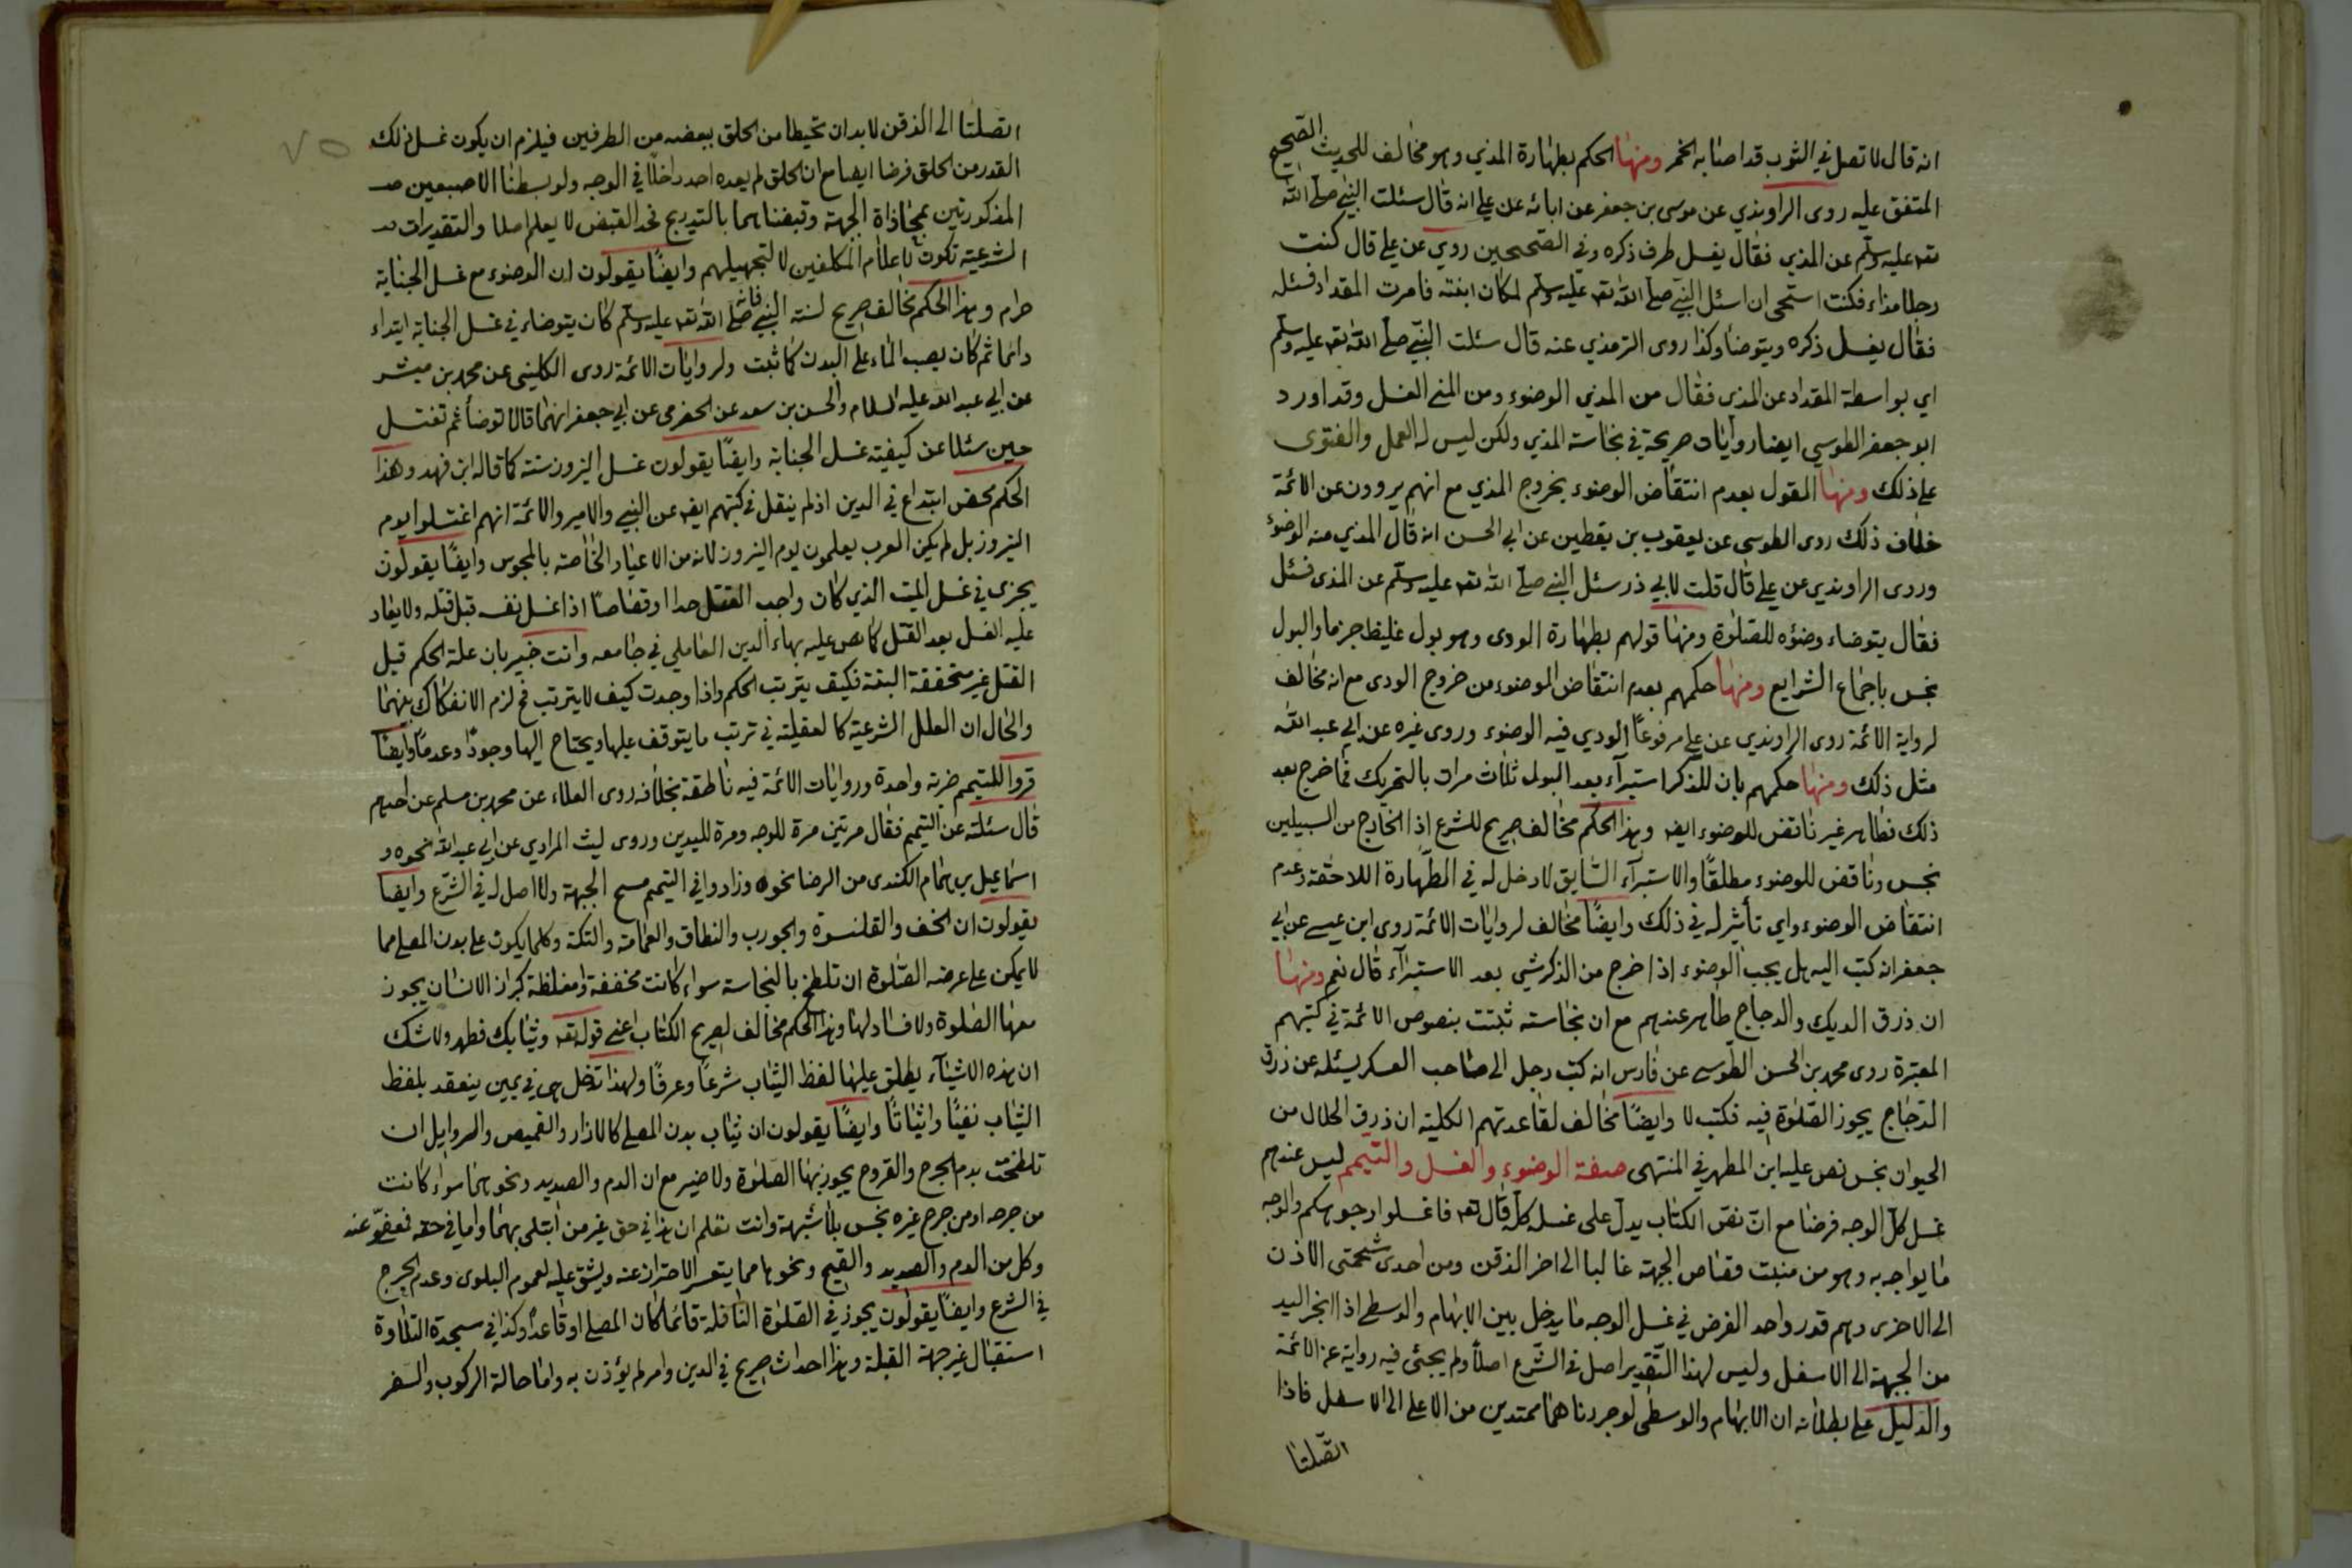 انه قال لا تصل في الثوب قد اصابه الخمر ومنها الحكم بطهارة المذي وهو مخالف للحديث الصحيح
المتفق عليه روى الراوندي عن موسى بن جعفر عن ابائه عن علي انه قال سئلت النبي صلى الله
تعه عليه وسلم عن المذي فقال يغسل طرف ذكره وفي الصحيحين روي عن علي قال كنت
رجلا مذاء فكنت استحى ان اسئل النبي صلى الله تعه عليه وسلم لمكان ابنته فامرت المقداد فسئله
فقال يغسل ذكره ويتوضأ وكذا روى الترمذي عنه قال سئلت النبي صلى الله تعه عليه وسلم
اي بواسطة المقداد عن المذي فقال من المذي الوضوء ومن المني الغسل وقد اورد
ابو جعفر الطوسي ايضا روايات صريحة في نجاسة المذي ولكن ليس له العمل والفتوى
على ذلك ومنها القول بعدم انتقاض الوضوء بخروج المذي مع انهم يروون عن الائمة
خلاف ذلك روى الطوسي عن يعقوب بن يقطين عن ابي الحسن انه قال المذي منه الوضوء
وروى الراوندي عن علي قال قلت لابي ذر سئل النبي صلى الله تعه عليه وسلم عن المذى فسئل
فقال يتوضاء وضوءه للصلوة ومنها قولهم بطهارة الودى وهو بول غليظ جزما والبول
نجس باجماع الشرايع ومنها حكمهم بعدم انتقاض الوضوء من خروج الودى مع انه مخالف
لرواية الائمة روى الراوندي عن علي مرفوعا الودي فيه الوضوء وروى غيره عن ابي عبد الله
مثل ذلك ومنها حكمهم بان للذكر استبرآء بعد البول ثلاث مرات بالتحريك فما خرج بعد
ذلك فطاهر غير ناقض للوضوء ايضه وهذا الحكم مخالف صريح للشرع اذ الخارج من السبيلين
نجس وناقض للوضوء مطلقا والاستبرآء السابق لا دخل له في الطهارة اللاحقة وعدم
انتقاض الوضوء واي تأثير له في ذلك وايضا مخالف لروايات الائمة روى ابن عيسى عن ابي
جعفر انه كتب اليه هل يجب الوضوء اذا خرج من الذكر شي بعد الاستبرآء قال نعم ومنها
ان ذرق الديك والدجاج طاهر عندهم مع ان نجاسته ثبتت بنصوص الائمة في كتبهم
المعتبرة روى محمد بن الحسن الطوسي عن فارس انه كتب رجل الى صاحب العسكر يسئله عن ذرق
الدجاج يجوز الصلوة فيه فكتب لا وايضا مخالف لقاعدتهم الكلية ان ذرق الحلال من
الحيوان نجس نص عليه ابن المطهر في المنتهى صفة الوضوء والغسل والتيمم ليس عندهم
غسل كل الوجه فرضا مع ان نص الكتاب يدل على غسل كله قال تعه فاغسلوا وجوهكم والوجه
ما يواجه به وهو من منبت قصاص الجبهة غالبا الى اخر الذقن ومن احدى شحمتى الاذن
الى الاخرى وهم قدروا حد الفرض في غسل الوجه ما يدخل بين الابهام والوسطى اذا انجر اليد
من الجبهة الى الاسفل وليس لهذا التقدير اصل في الشرع اصلا ولم يجئ فيه رواية عن الائمة
والدليل على بطلانه ان الابهام والوسطى لو جررناهما ممتدين من الاعلى الى الاسفل فاذا
اتصلتا
٧٥
اتصلتا الى الذقن لا بد ان تحيطا من الحلق ببعضه من الطرفين فيلزم ان يكون غسل ذلك
القدر من الحلق فرضا ايضا مع ان الحلق لم يعده احد داخلا في الوجه ولو بسطنا الاصبعين
المذكورتين بمحاذاة الجبهة وقبضناهما بالتدريج فحد القبض لا يعلم اصلا والتقديرات
الشرعية تكون لاعلام المكلفين لا لتجهيلهم وايضا يقولون ان الوضوء مع غسل الجنابة
حرام وهذا الحكم مخالف صريح لسنة النبي فانه صلى الله تعه عليه وسلم كان يتوضاء في غسل الجنابة ابتداء
دائما ثم كان يصب الماء على البدن كما ثبت ولروايات الائمة روى الكليني عن محمد بن ميسر
عن ابي عبد الله عليه السلام والحسن بن سعد عن الحضرمي عن ابي جعفر انهما قالا توضأ ثم تغتسل
حين سئلا عن كيفية غسل الجنابة وايضا يقولون غسل النيروز سنة كما قاله ابن فهد وهذا
الحكم محض ابتداع في الدين اذ لم ينقل في كتبهم ايضه عن النبي والامير والائمة انهم اغتسلوا يوم
النيروز بل لم يكن العرب يعلمون يوم النيروز لانه من الاعياد الخاصة بالمجوس وايضا يقولون
يجزى في غسل الميت الذي كان واجب القتل حدا او قصاصا اذا غسل نفسه قبل قتله ولا يعاد
عليه الغسل بعد القتل كما نص عليه بهاء الدين العاملي في جامعه وانت خبير بان علة الحكم قبل
القتل غير متحققة البتة فكيف يترتب الحكم واذا وجدت كيف لا يترتب فح لزم الانفكاك بينهما
والحال ان العلل الشرعية كالعقلية في ترتب ما يتوقف عليها ويحتاج اليها وجودا وعدما وايضا
قروا للمتيمم ضربة واحدة وروايات الائمة فيه ناطقة بخلافه روى العلاء عن محمد بن مسلم عن احدهم
قال سئلته عن التيمم فقال مرتين مرة للوجه ومرة لليدين وروى ليث المرادي عن ابي عبد الله نحوه و
اسماعيل بن همام الكندى من الرضا نحوه وزادوا في التيمم مسح الجبهة ولا اصل له في الشرع وايضا
يقولون ان الخف والقلنسوة والجورب والنطاق والعمامة والتكة وكلما يكون على بدن المصلى مما
لا يمكن على عرضه الصلوة ان تلطخ بالنجاسة سواء كانت مخففة او مغلظة كبراز الانسان يجوز
معها الصلوة ولا فساد لها وهذا الحكم مخالف لصريح الكتاب اعني قوله تعه وثيابك فطهر ولا شك
ان هذه الاشيآء يطلق عليها لفظ الثياب شرعا وعرفا ولهذا تدخل هي في يمين ينعقد بلفظ
الثياب نفيا واثباتا وايضا يقولون ان ثياب بدن المصلى كالازار والقميص والسراويل ان
تلطخت بدم الجرح والقروح يجوز بها الصلوة ولا ضير مع ان الدم والصديد ونحوهما سواء كانت
من جرحه او من جرح غيره نجس بلا شبهة وانت تعلم ان هذا في حق غير من ابتلى بهما واما في حقه فمعفو عنه
وكل من الدم والصديد والقيح ونحوها مما يتعسر الاحتراز عنه ويشق عليه لعموم البلوى وعدم الحرج
في الشرع وايضا يقولون يجوز في الصلوة النافلة قائما كان المصلى او قاعدا وكذا في سجدة التلاوة
استقبال غير جهة القبلة وهذا احداث صريح في الدين وامر لم يؤذن به واما حالة الركوب والسفر